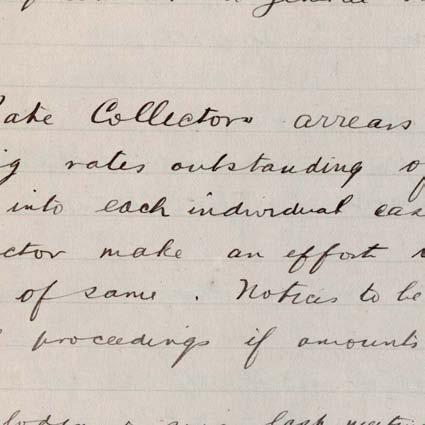 a general
Rate Collectors arrears
ig rates outstanding of
into each individual cas
ctor make an effort
of same. Notices to be
proceedings if amounts